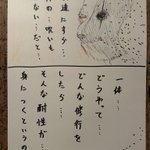 達にすら…
の…呪いも
ない…だと…
一体…
どうやって…
どんな修行を
したら…
そんな耐性が…
身につくという